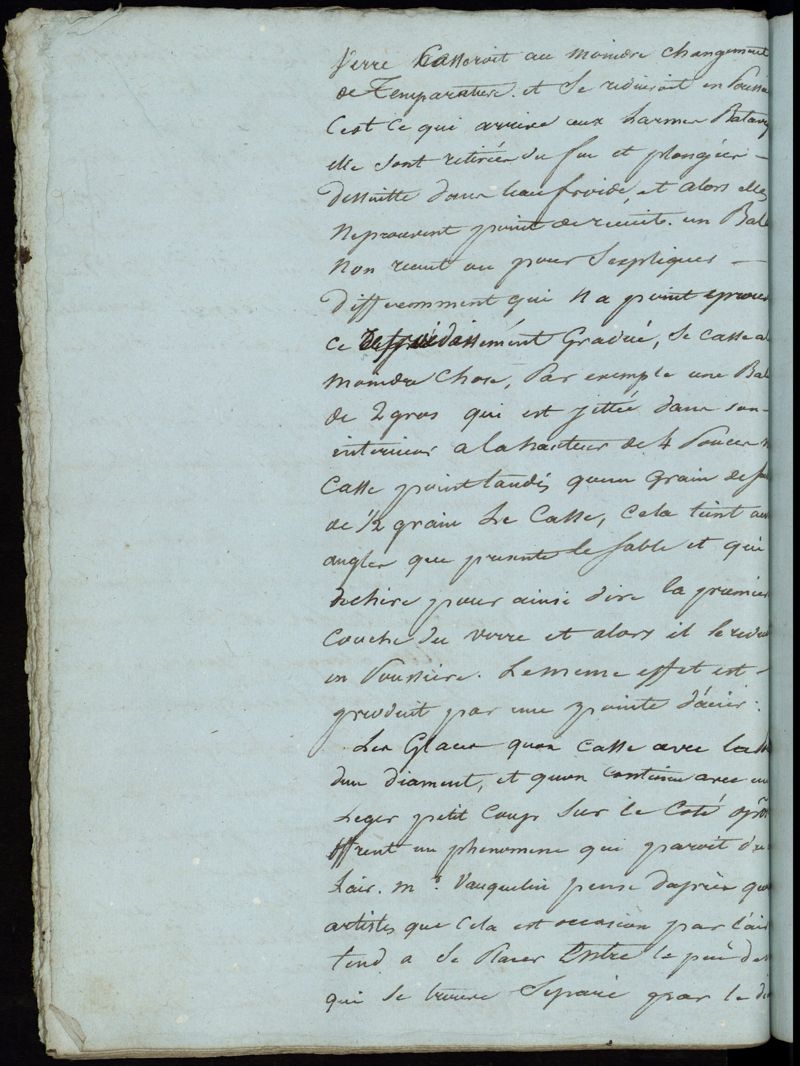 Verre Casseroit au moindre changement
de Temparature. et se reduiroit en Poussie
Cest ce qui arrive aux Larmes Batavi
elle sont retirées du feu et plongées –
dessuitte dans leau froide, et alors elles
Neprouvent point de recuite. un Bal
Non recuit ou pour Sexpliquer –
differemment qui N a point eprouvé
ce Refroidissement Gradué, se casse a
moindre chose, Par exemple une Bal
de 2 gros qui est jittée dans son –
interieur a la hauteur de 4 Pouces n
Casse point tandis quun Grain de
de 1/2 grain Le Casse, cela tient aux
angles que presente le sable et qui
dechire pour ainsi dire la premier
Couche du verre et alors il le redui
en Poussière. Le meme effet est –
produit par une pointe d'acier :
Les Glaces quon casse avec
dun diament, et quon continue avec un
Leger petit Coup Sur le Coté opo
offrent un phenomene qui paroit du
Lair. mr. Vauquelin pense daprès que
artistes que Cela est occasion par l'air
tend a Se Placer Entre le
qui Se trouve Separé par le di